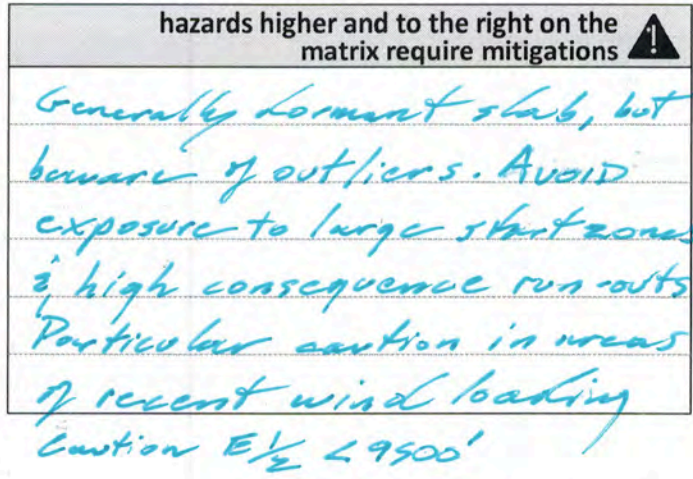 hazards higher and to the right on the
matrix require mitigations
Generally dormant slab, but
beware of outliers. AVOID
exposure to large start zones
& high consequence run-outs
Particular caution in areas
of recent wind loading
Caution E 1/2 < 9500'